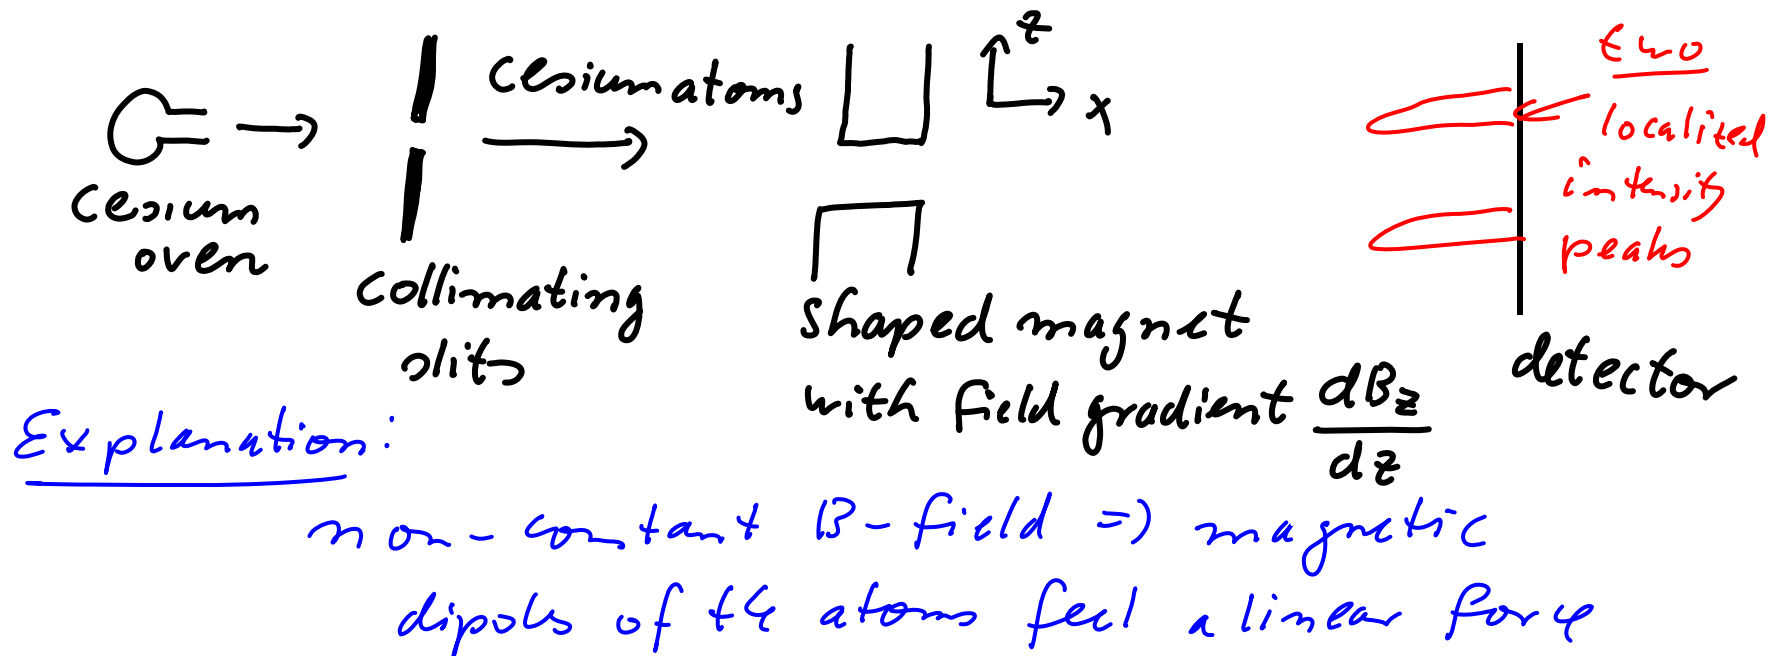 z
x
cesium atoms
cesium
oven
collimating
slits
shaped magnet
with field gradient dBz
dz
two
localized
intensity
peaks
detector
Explanation:
non-constant B-field => magnetic
dipols of the atoms feel a linear force